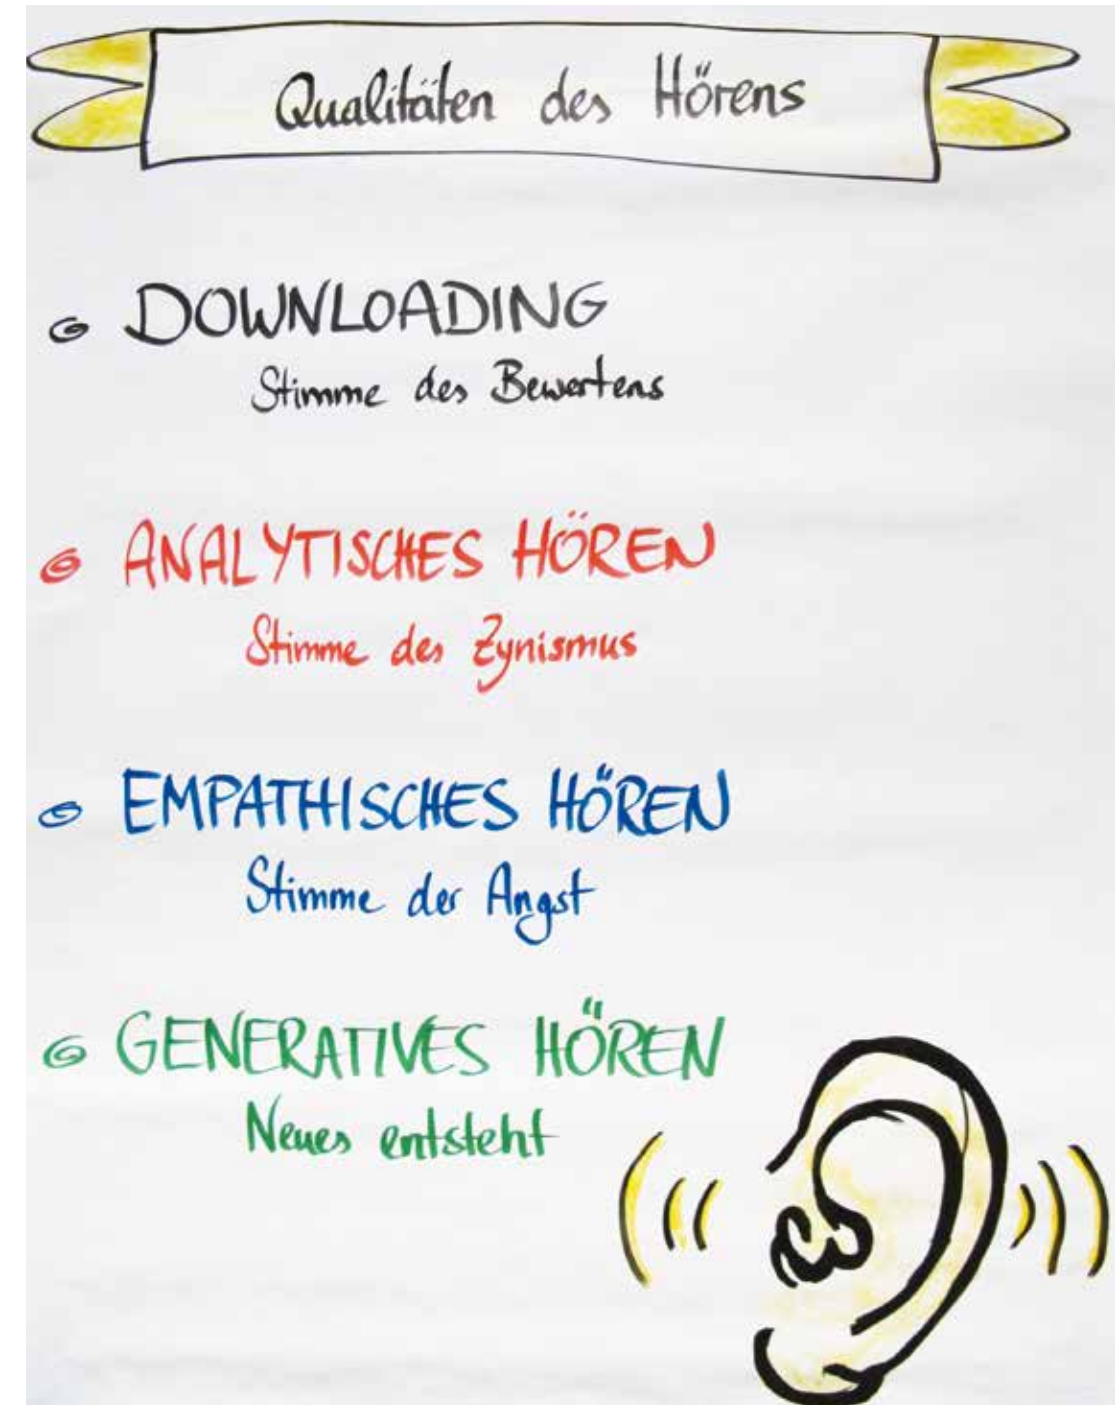 Qualitäten des Hörens
DOWNLOADING
Stimme des Bewertens
ANALYTISCHES HÖREN
Stimme des Zynismus
EMPATHISCHES HÖREN
Stimme der Angst
GENERATIVES HÖREN
Neues entsteht